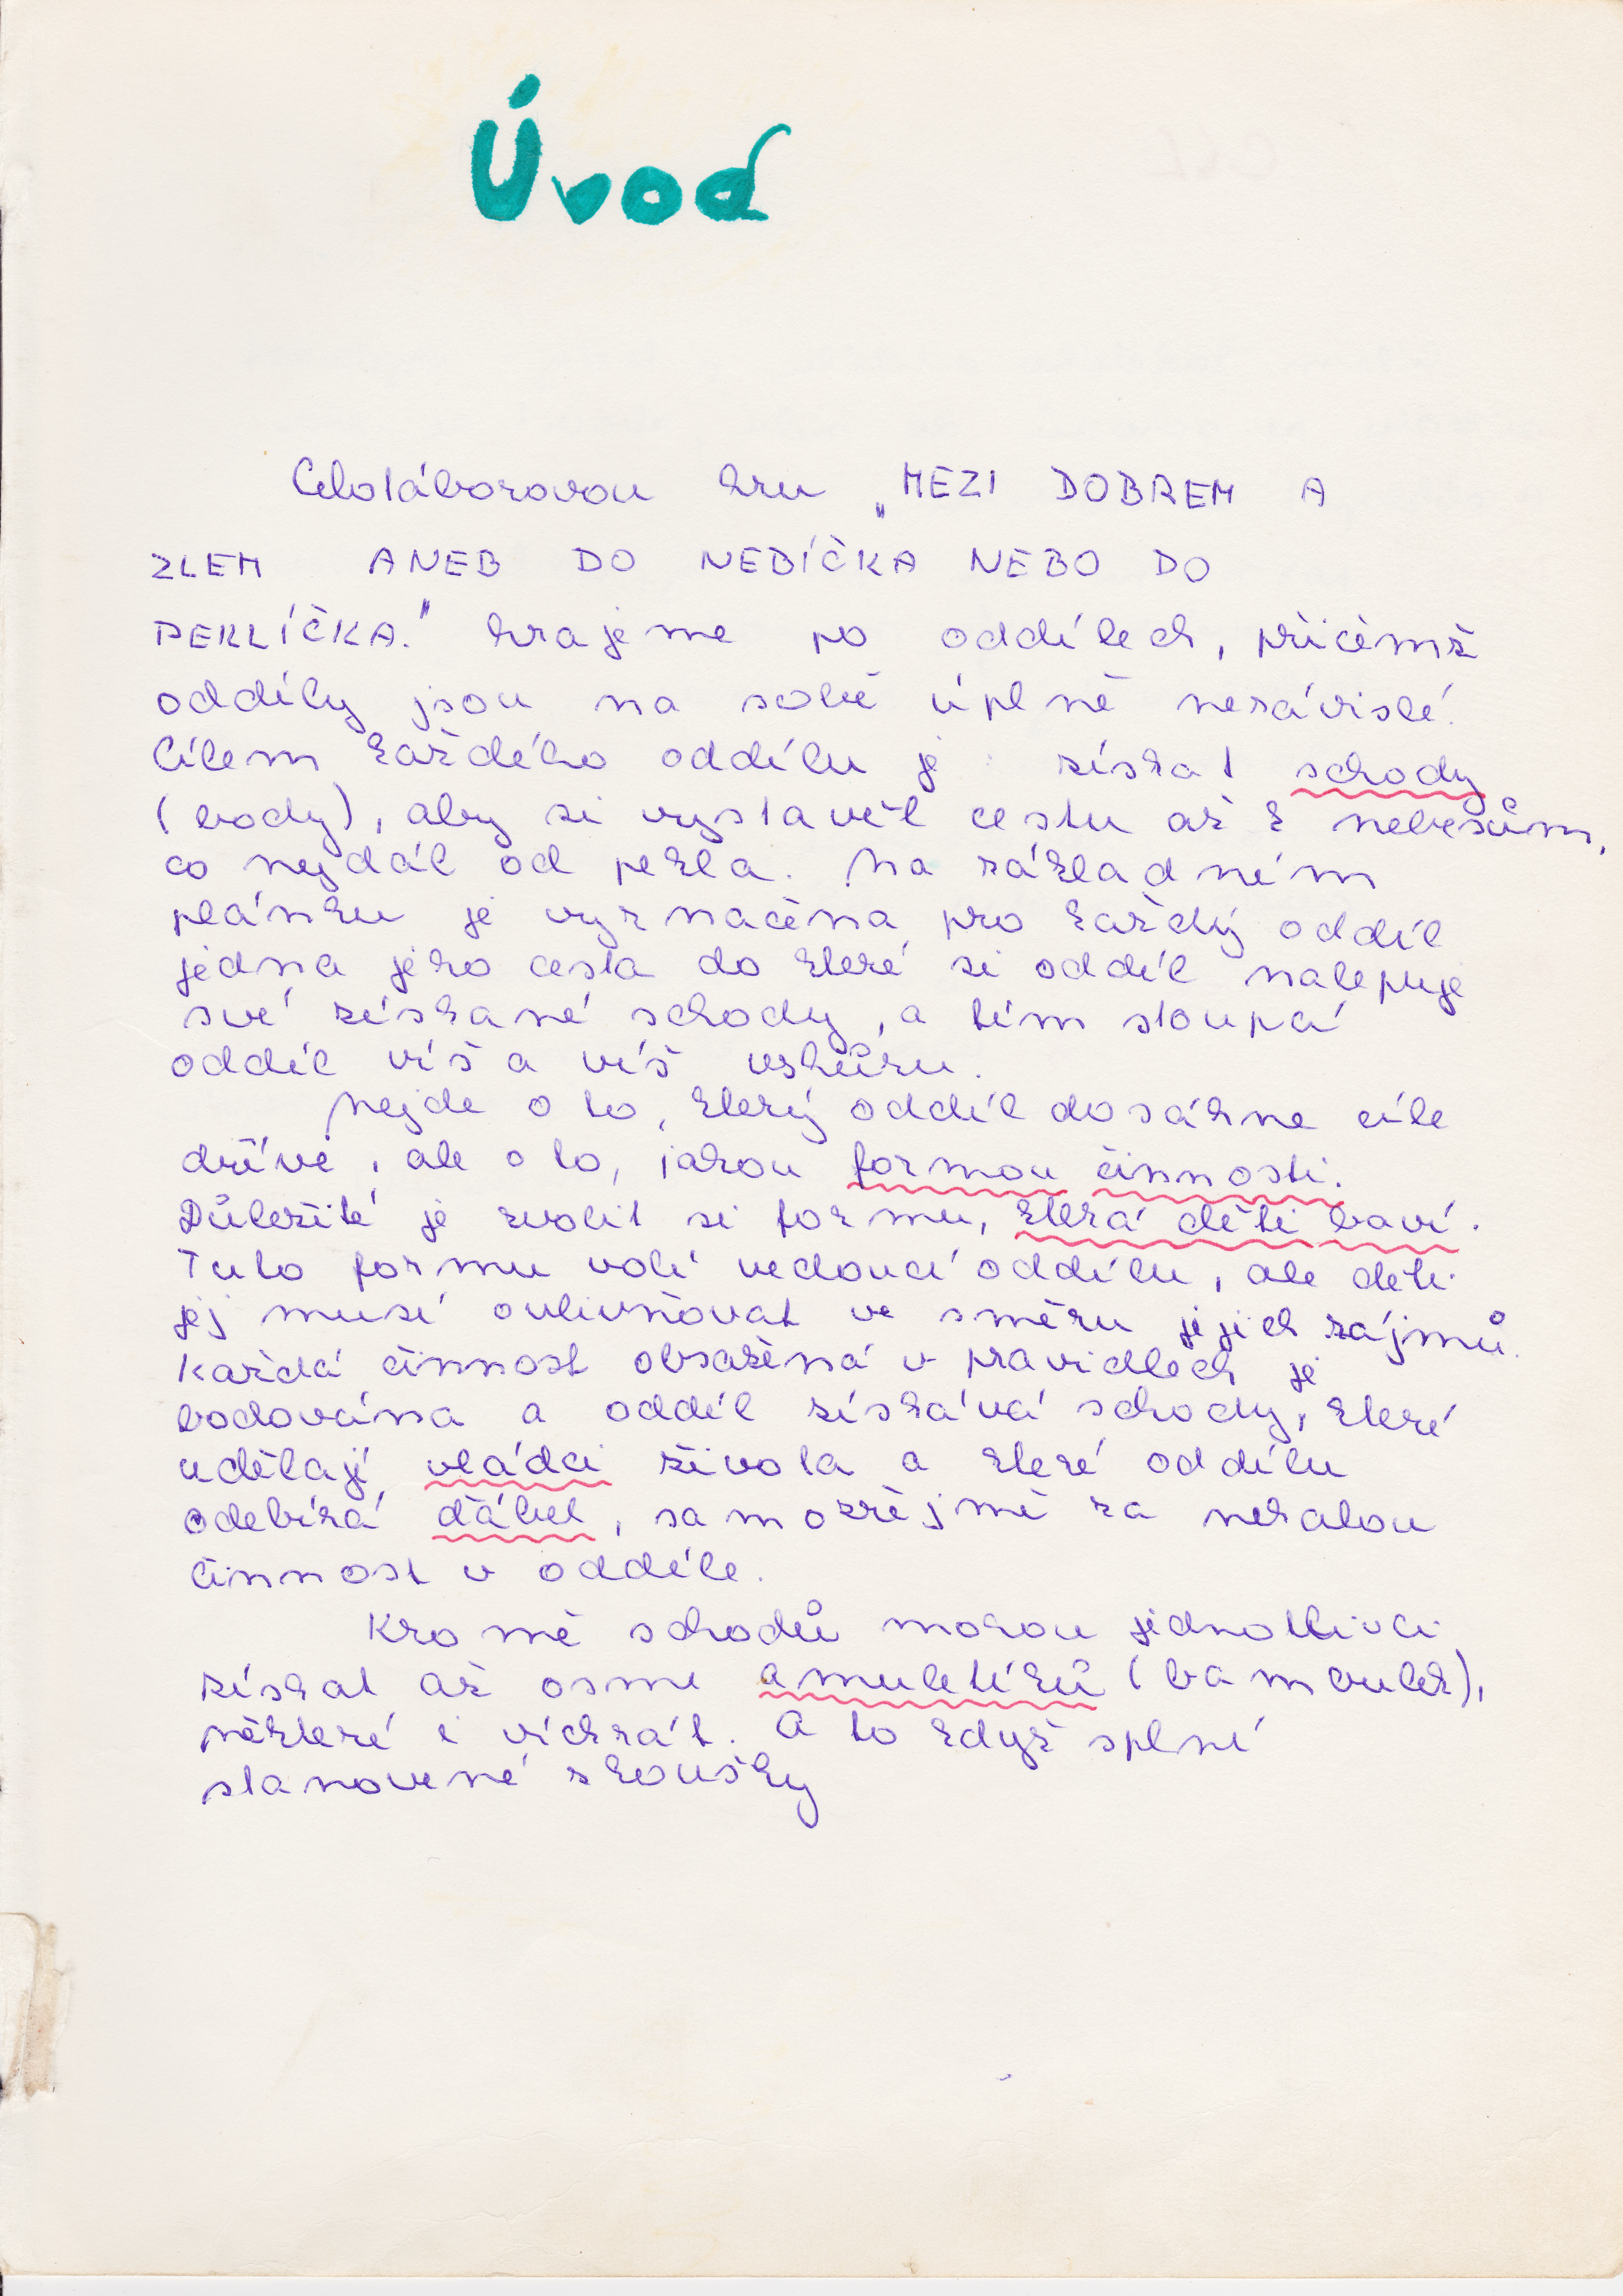 Úvod
Celotáborovou hru „MEZI DOBREM A
ZLEM ANEB DO NEBÍČKA NEBO DO
PEKLÍČKA." hrajeme po oddílech, přičemž
oddíly jsou na sobě úplně nezávislé.
Cílem každého oddílu je získat schody
(body), aby si vystavěl cestu až k nebesům,
co nejdál od pekla. Na základním
plánku je vyznačena pro každý oddíl
jedna jeho cesta do které si oddíl nalepuje
své získané schody, a tím stoupá
oddíl víš a víš vzhůru.
Nejde o to, který oddíl dosáhne cíle
dříve, ale o to, jakou formou činnosti.
Důležité je zvolit si formu, která děti baví.
Tuto formu volí vedoucí oddílu, ale děti
jej musí ovlivňovat ve směru jejich zájmů.
Každá činnost obsažená v pravidlech je
bodována a oddíl získává schody, které
udělají vládci života a které oddílu
odebírá ďábel, samozřejmě za nekalou
činnost v oddíle.
Kromě schodů mohou jednotlivci
získat až osm amuletíků (bambulek),
některé i víckrát. A to když splní
stanovené zkoušky